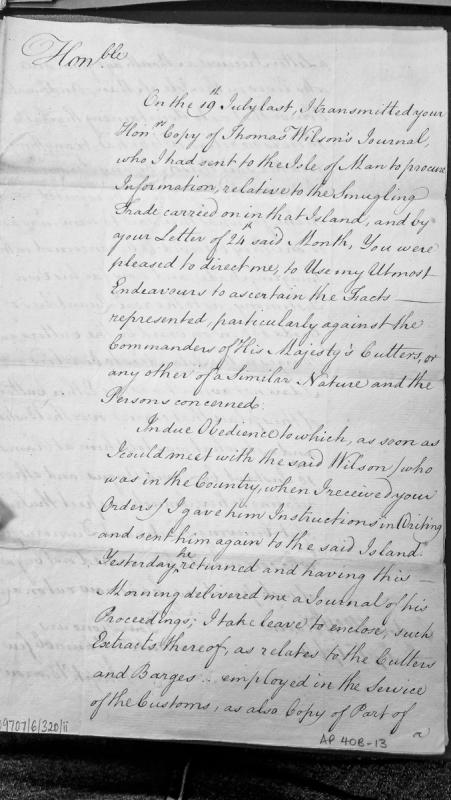 Hon.ble
On the 19th July last, I transmitted your
Hon.rs Copy of Thomas Wilson's Journal,
who I had sent to the Isle of Man to procure
Information, relative to the Smugling
Trade carried on in that Island, and by
your Letter of 24th said Month, You were
pleased to direct me, to Use my Utmost
Endeavours to ascertain the Facts —
represented, particularly against the
Commanders of His Majesty's Cutters, or
any other of a Similar Nature and the
Persons concerned.
In due Obedience to which, as soon as
I could meet with the said Wilson / who
was in the Country, when I received your
Orders / I gave him Instructions in Writing
and sent him again to the said Island.
Yesterday he returned and having this —
Morning delivered me a Journal of his
Proceedings; I take leave to enclose, such
Extracts thereof, as relates to the Cutters
and Barges ... employed in the Service
of the Customs, as also Copy of Part of
a
9707/6/320/ii
AP 40B-13